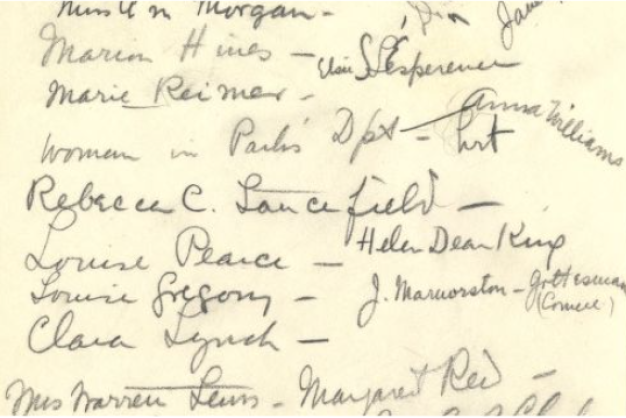 Morgan -
Marion Hines - Elise L'Esperence
Marie Reimer -
Anna Williams
Woman in Path Dpt -
Rebecca C. Lancefield -
Louise Pearce - Helen Dean King
Louise Gregory - J. Marmorston - Gottesman
(Cornell)
Clara Lynch -
Mrs Warren Lewis - Margaret Reed -